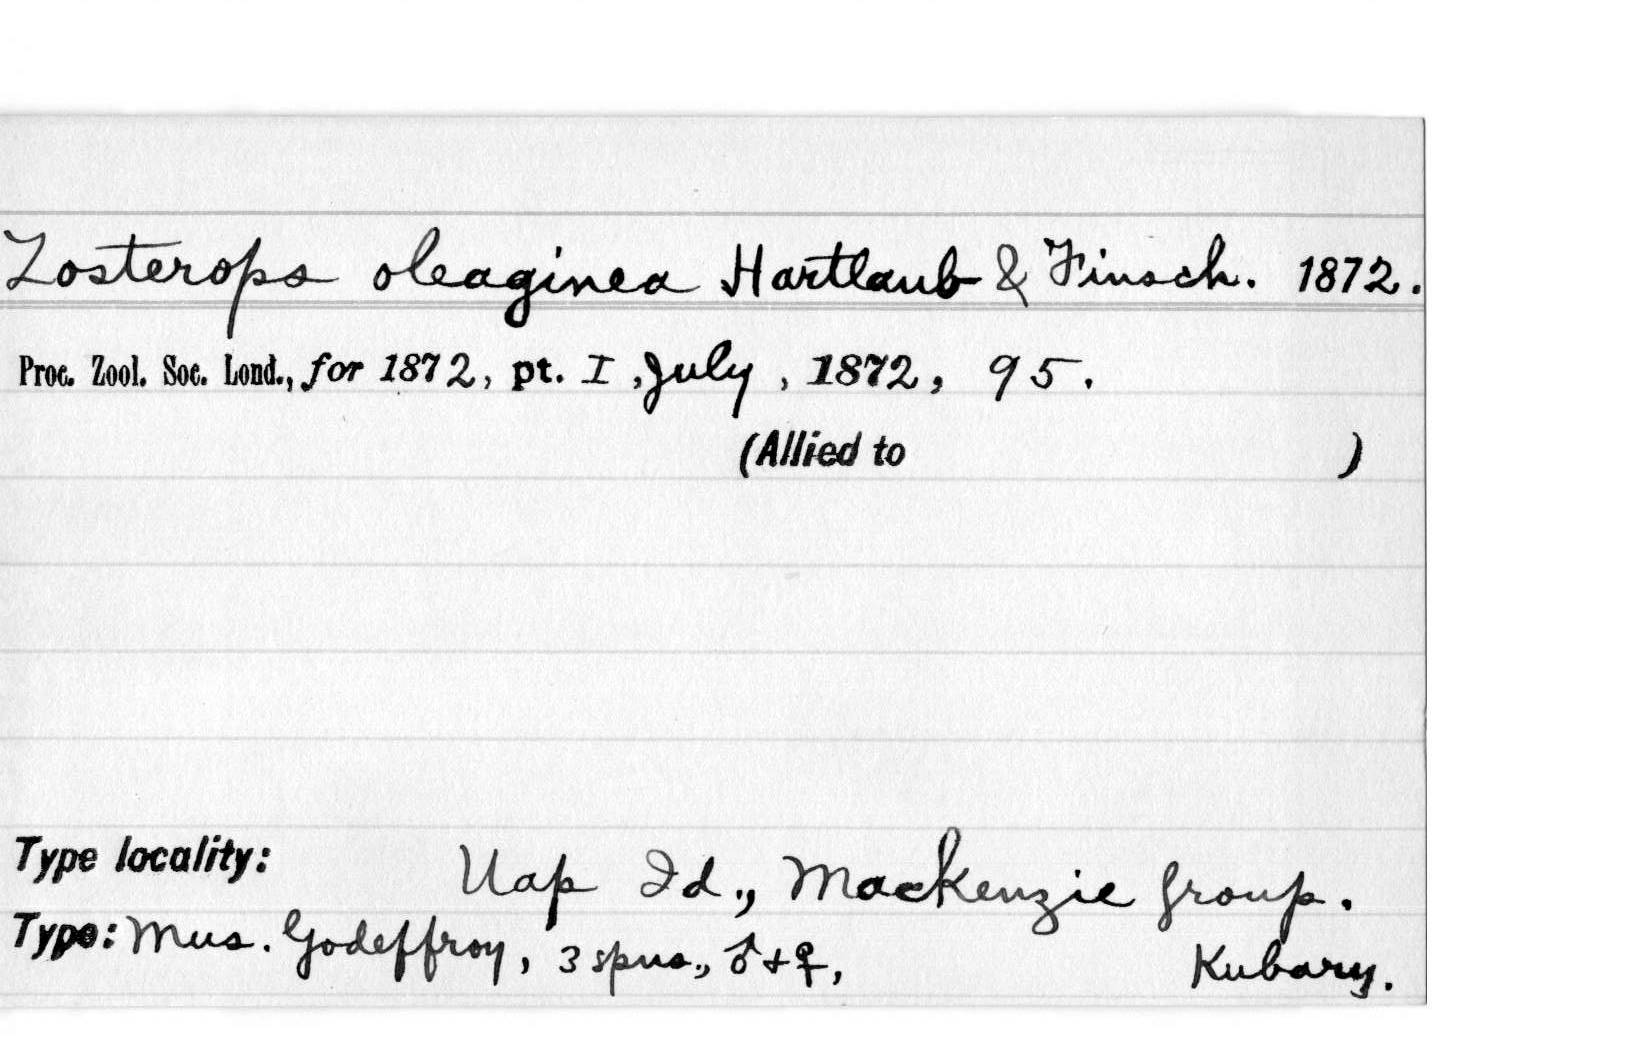 Zosterops oleaginea Hartlaub & Finsch. 1872.
Proc. Zool. Soc. Lond., for 1872, pt. I, July, 1872, 95.
(Allied to )
Type locality: Uap Id., Mackenzie Group.
Type: Mus. Godeffroy, 3 spns., ♂+♀, Kubary.